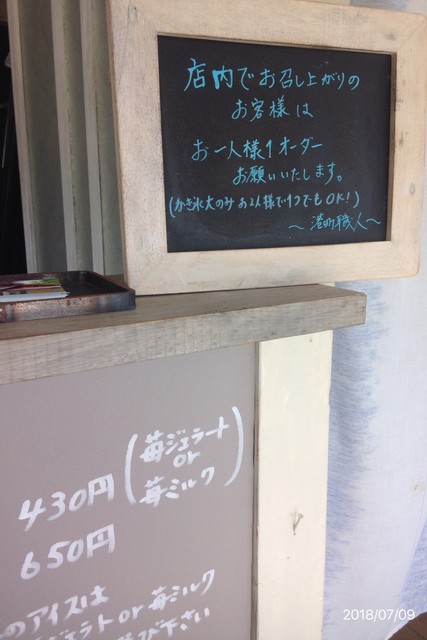 店内でお召し上がりの
お客様は
お一人様1オーダー
お願いいたします。
(かき氷大のみお2人様で1つでもOK!)
～港町職人～
430円(苺ジェラート
or
苺ミルク)
650円
のアイスは
ジェラト or 苺ミルク
び下さい
2018/07/09